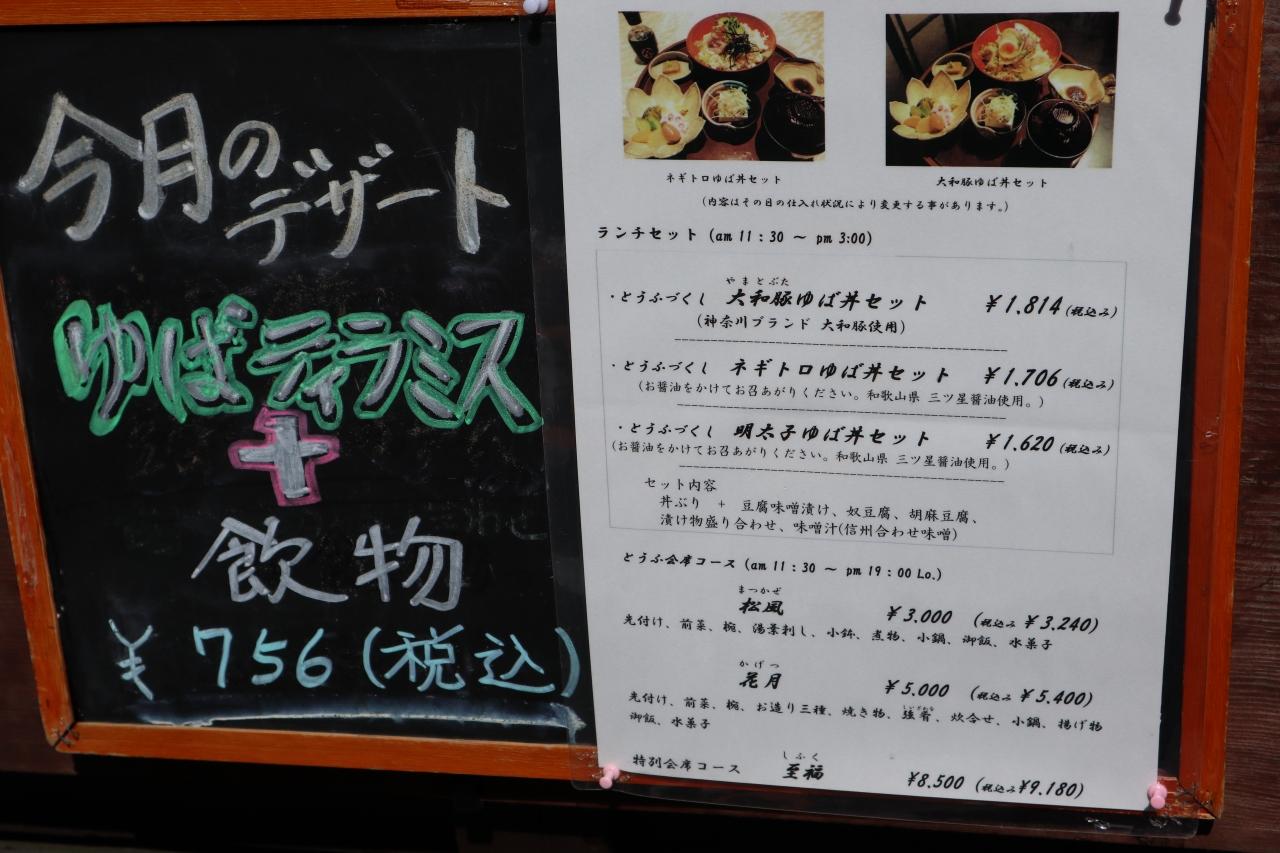 今月の
デザート
ゆばティラミス
+
飲物
¥756(税込)
ネギトロゆば丼セット
大和豚ゆば丼セット
(内容はその日の仕入れ状況により変更する事があります。)
ランチセット (am 11:30 ～ pm 3:00)
やまとぶた
・とうふづくし 大和豚ゆば丼セット ¥1.814(税込み)
(神奈川ブランド 大和豚使用)
・とうふづくし ネギトロゆば丼セット ¥1.706(税込み)
(お醤油をかけてお召あがりください。和歌山県 三ツ星醤油使用。)
・とうふづくし 明太子ゆば丼セット ¥1.620(税込み)
(お醤油をかけてお召あがりください。和歌山県 三ツ星醤油使用。)
セット内容
丼ぶり + 豆腐味噌漬け、奴豆腐、胡麻豆腐、
漬け物盛り合わせ、味噌汁(信州合わせ味噌)
とうふ会席コース (am 11:30 ～ pm 19:00 Lo.)
まつかぜ
松風 ¥3.000 (税込み ¥3.240)
先付け、前菜、椀、湯葉刺し、小鉢、煮物、小鍋、御飯、水菓子
かげつ
花月 ¥5.000 (税込み ¥5.400)
先付け、前菜、椀、お造り三種、焼き物、強肴、炊合せ、小鍋、揚げ物
御飯、水菓子
しふく
特別会席コース 至福 ¥8.500 (税込み¥9.180)